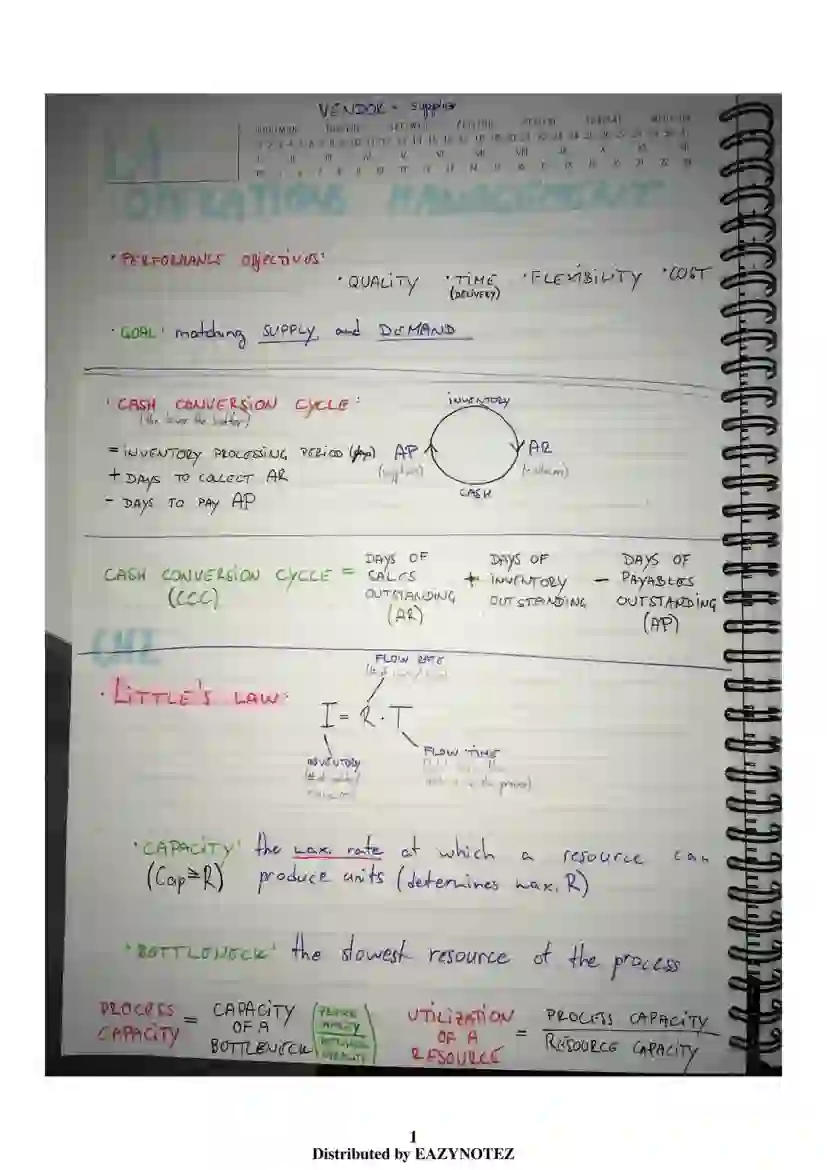 VENDOR = supplier
L1
OPERATIONS MANAGEMENT
'PERFORMANCE OBJECTIVES'
• QUALITY • TIME • FLEXIBILITY • COST
(DELIVERY)
'GOAL' matching SUPPLY and DEMAND
'CASH CONVERSION CYCLE'
(the lower the better)
= INVENTORY PROCESSING PERIOD (days)
+ DAYS TO COLLECT AR
- DAYS TO PAY AP
INVENTORY
AP
AR
CASH
CASH CONVERSION CYCLE = DAYS OF SALES OUTSTANDING + DAYS OF INVENTORY OUTSTANDING - DAYS OF PAYABLES OUTSTANDING
(CCC) (AR) (AP)
• LITTLE'S LAW:
FLOW RATE
I = R · T
INVENTORY
FLOW TIME
'CAPACITY' the max. rate at which a resource can
(Cap ≥ R) produce units (determines max. R)
'BOTTLENECK' the slowest resource of the process
PROCESS CAPACITY = CAPACITY OF A BOTTLENECK
UTILIZATION OF A RESOURCE = PROCESS CAPACITY
RESOURCE CAPACITY
1
Distributed by EAZYNOTEZ